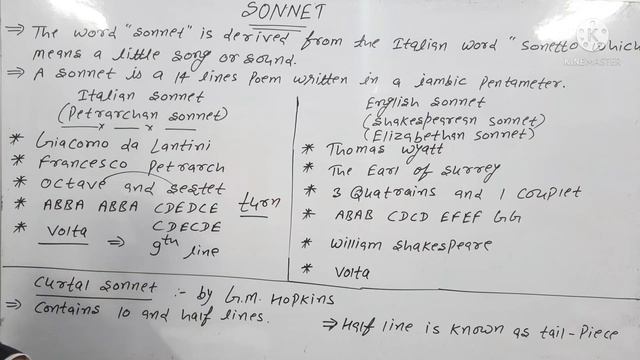 SONNET
⇒ The word "sonnet" is derived from the Italian word "sonetto" which
means a little song or sound.
⇒ A sonnet is a 14 lines Poem written in a iambic Pentameter.
Italian sonnet
(Petrarchan sonnet)
* Giacomo da Lantini
* Francesco Petrarch
* octave and sestet
* ABBA ABBA CDEDCE turn
CDECDE
* Volta ⇒ 9th line
English sonnet
(Shakespearean sonnet)
(Elizabethan sonnet)
* Thomas Wyatt
* The Earl of Surrey
* 3 Quatrains and 1 couplet
* ABAB CDCD EFEF GG
* William Shakespeare
* Volta
Curtal sonnet :- by G.M. Hopkins
⇒ Contains 10 and half lines.
⇒ Half line is known as tail-Piece
KINEMASTER